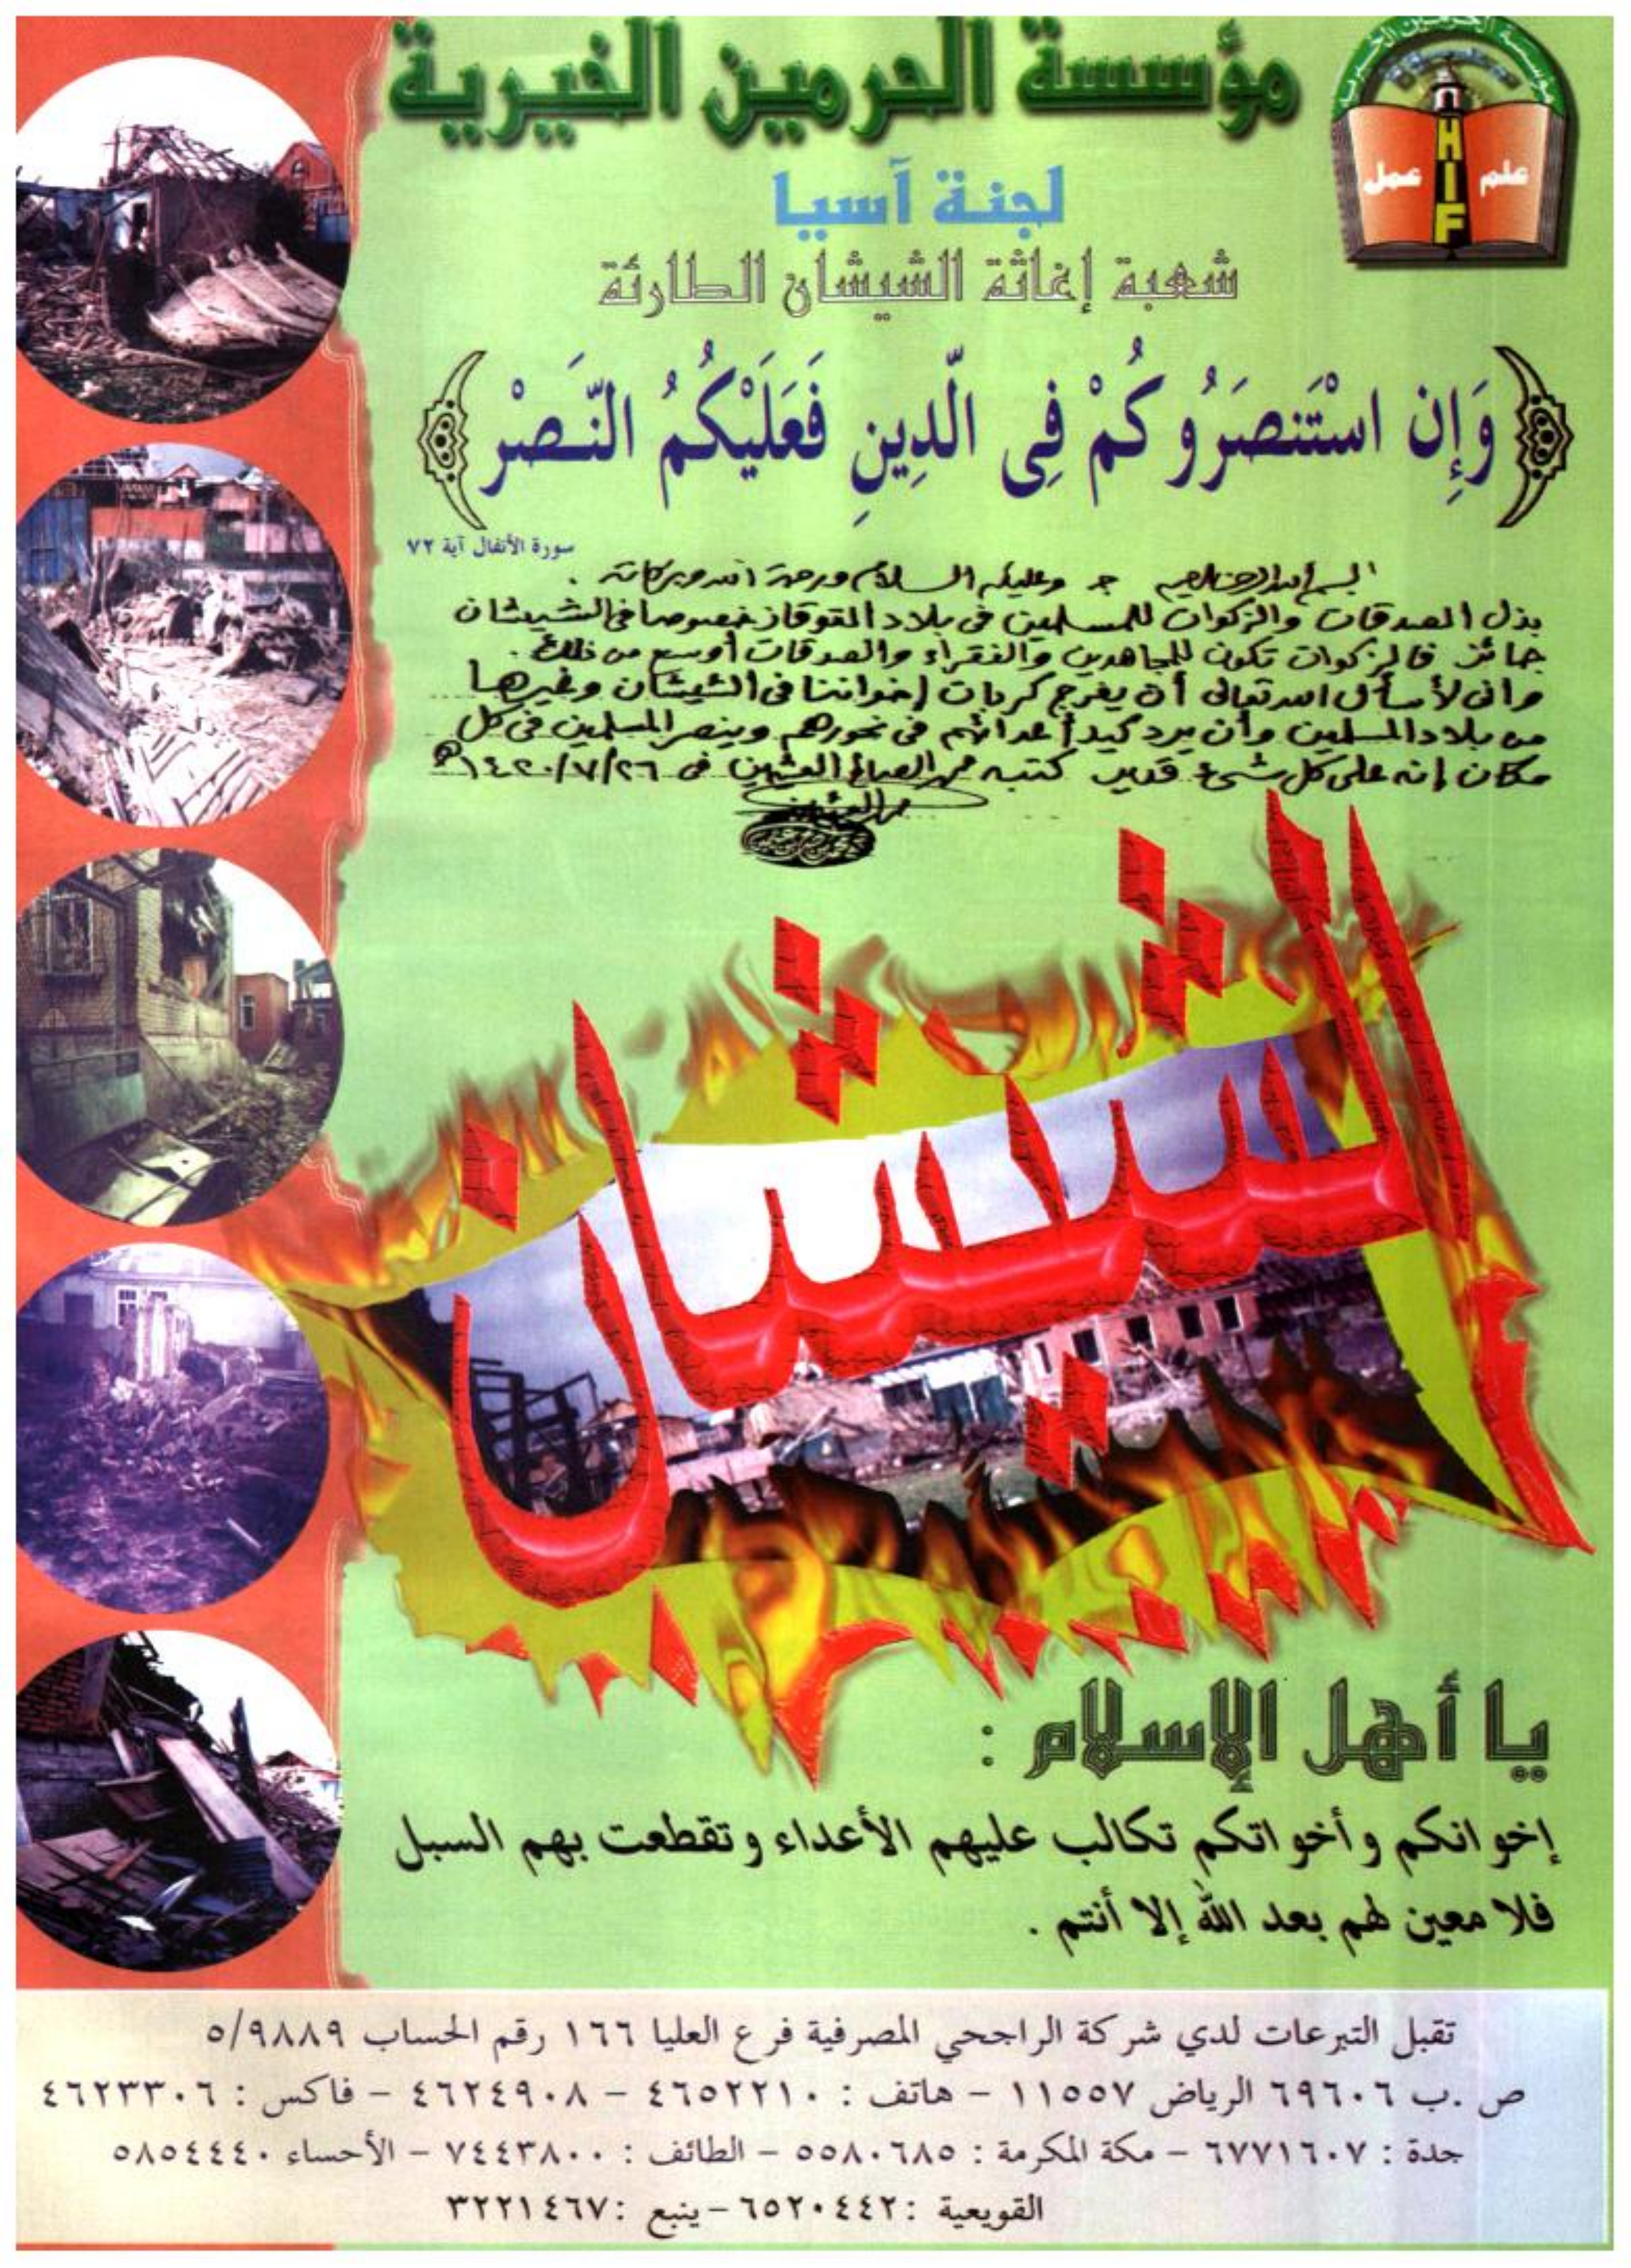 مؤسسة الحرمين الخيرية
مؤسسة الحرمين الخيرية
علم عمل
HIF
لجنة آسيا
شعبة إغاثة الشيشان الطارئة
﴿وَإِن اسْتَنصَرُوكُمْ فِى الّدِينِ فَعَلَيْكُمُ النَّصَرْ﴾
سورة الأنفال آية ٧٢
وعليكم السلام ورحمة الله وبركاته .
بذل الصدقات والزكوات للمسلمين في بلاد القوقاز خصوصا في الشيشان
جائز فالزكوات تكون للمجاهدين والفقراء والصدقات أوسع من ذلك .
وإني لأسأل الله تعالى أن يفرج كربات إخواننا في الشيشان وغيرها
من بلاد المسلمين وأن يرد كيد أعدائهم في نحورهم وينصر المسلمين في كل
مكان إنه على كل شيء قدير كتبه محمد الصالح العثيمين في ١٤٢٠/٧/٢٦هـ
الشيشان
يا أهل الإسلام :
إخوانكم وأخواتكم تكالب عليهم الأعداء وتقطعت بهم السبل
فلا معين لهم بعد الله إلا أنتم .
تقبل التبرعات لدي شركة الراجحي المصرفية فرع العليا ١٦٦ رقم الحساب ٥/٩٨٨٩
ص .ب ٦٩٦٠٦ الرياض ١١٥٥٧ – هاتف : ٤٦٥٢٢١٠ – ٤٦٢٤٩٠٨ – فاكس : ٤٦٢٣٣٠٦
جدة : ٦٧٧١٦٠٧ – مكة المكرمة : ٥٥٨٠٦٨٥ – الطائف : ٧٤٤٣٨٠٠ – الأحساء ٥٨٥٤٤٤٠
القويعية : ٦٥٢٠٤٤٢ – ينبع : ٣٢٢١٤٦٧